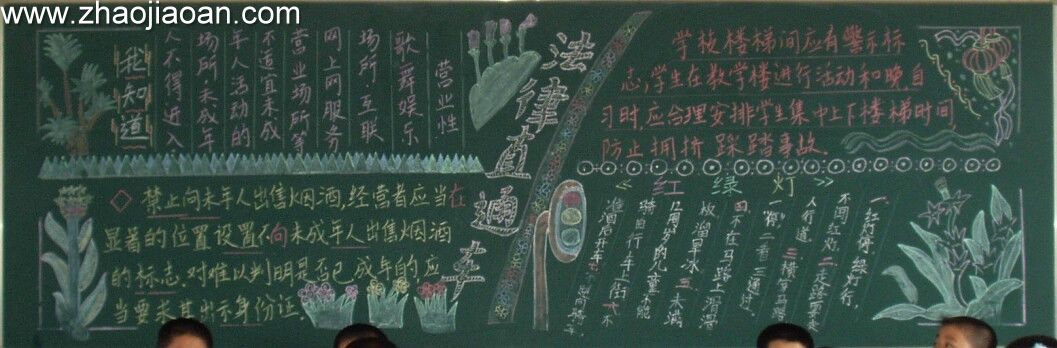 www.zhaojiaoan.com
我知道
营业性
歌舞娱乐
场所、互联
网上网服务
营业场所等
不适宜未成
年人活动的
场所,未成年
人不得进入
法律直通车
禁止向未年人出售烟酒,经营者应当在
显著的位置设置不向未成年人出售烟酒
的标志,对难以判明是否已成年的,应
当要求其出示身份证.
学校楼梯间应有警示标
志,学生在教学楼进行活动和晚自
习时,应合理安排学生集中上下楼梯时间,
防止拥挤踩踏事故.
《红绿灯》
一、红灯停,绿灯行,
不闯红灯。二、走路要走
人行道。三、横穿马路
一"停"二看三通过。
四、不在马路上滑滑
板、溜旱冰。五、未满
12周岁的儿童不能
骑自行车上街。六、不
准酒后开车